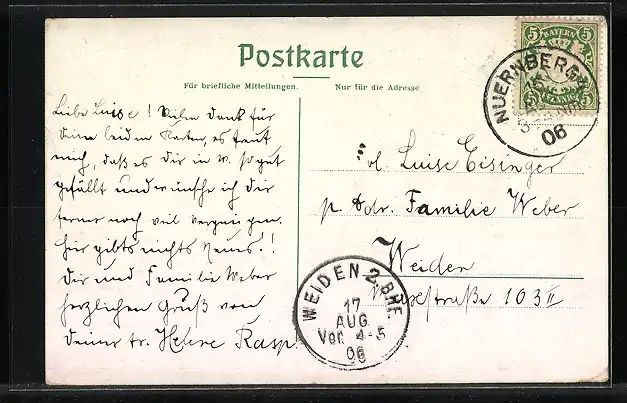 Postkarte
Für briefliche Mitteilungen.
Nur für die Adresse
5 BAYERN 5
5 PFENNIG 5
NUERNBERG
06
Liebe Luise! Vielen Dank für
Deine beiden Karten, es freut
mich, daß es Dir in W. so gut
gefällt und wünsche ich Dir
ferner noch viel Vergnügen.
Hier gibts nichts Neues!!
Dir und Familie Weber
herzlichen Gruß von
Deiner tr. Helene Rasp.
Luise Eisinger
p. Adr. Familie Weber
Weiden
103 II
WEIDEN 2 BHF.
17
AUG
Vor. 4-5
06